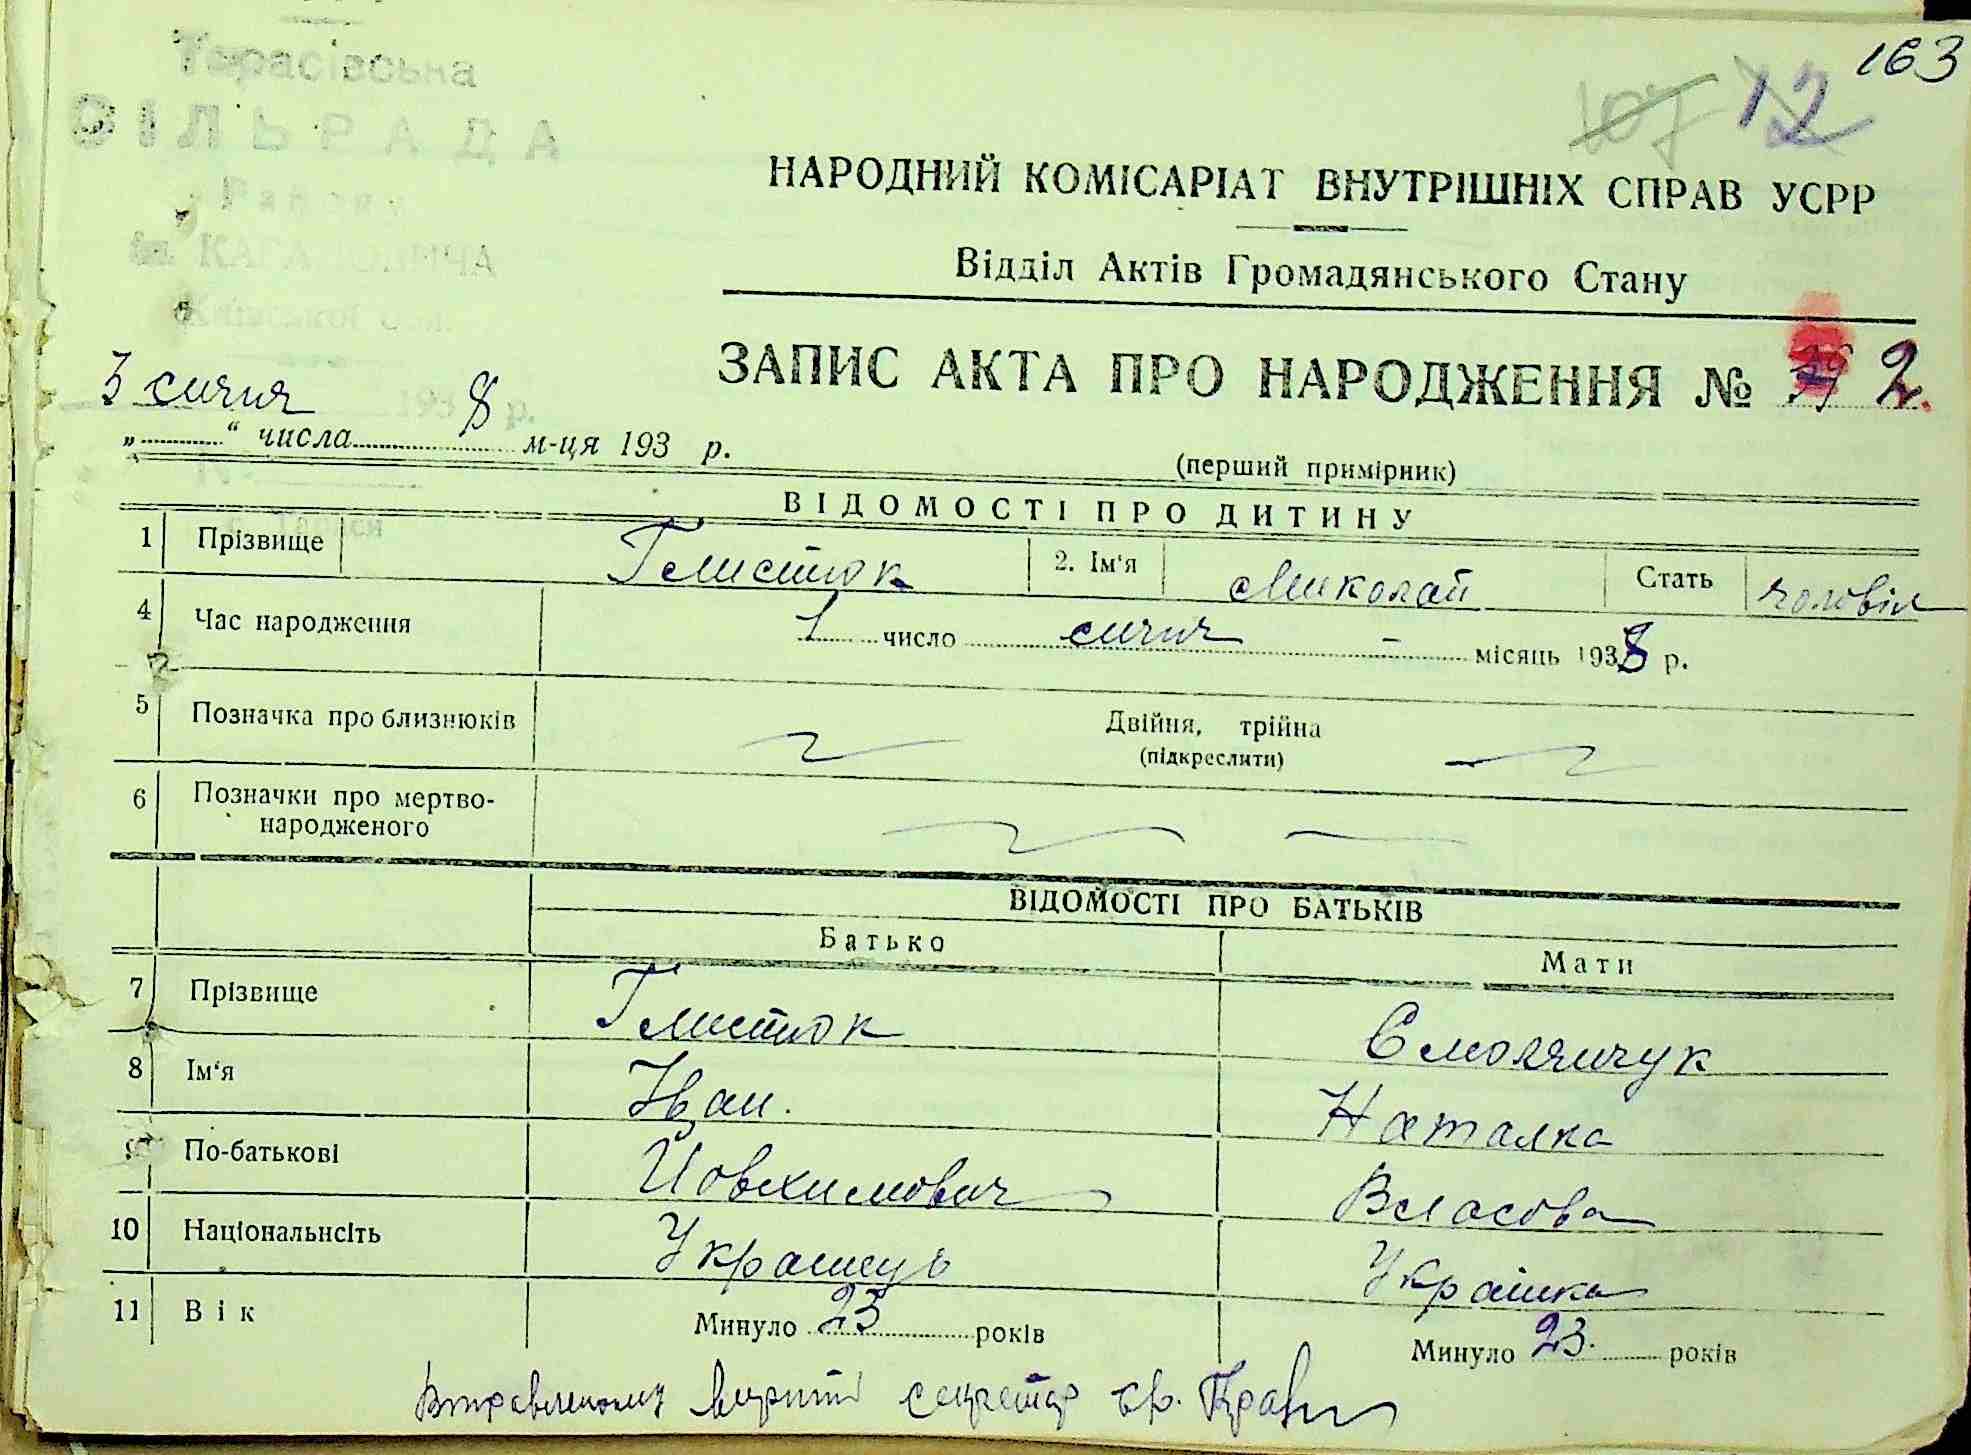 163
107 12
Тарасівська
СІЛЬРАДА
Району
ім. КАГАНОВИЧА
Київської Обл.
НАРОДНИЙ КОМІСАРІАТ ВНУТРІШНІХ СПРАВ УСРР
Відділ Актів Громадянського Стану
ЗАПИС АКТА ПРО НАРОДЖЕННЯ № 2.
3 січня 193 8 р.
„ “ числа м-ця 193 р.
(перший примірник)
№
с. Тараси
ВІДОМОСТІ ПРО ДИТИНУ
1 Прізвище Глистюк 2. Ім‘я Миколай Стать чоловіч
4 Час народження 1 число січня - місяць 1938 р.
5 Позначка про близнюків Двійня, трійна
(підкреслити)
6 Позначки про мертво-
народженого
ВІДОМОСТІ ПРО БАТЬКІВ
Батько Мати
7 Прізвище Глистюк Смолянчук
8 Ім‘я Іван. Наталка
9 По-батькові Йовхимович Власова
10 Національнсіть Українець Українка
11 Вік Минуло 23 років Минуло 23. років
секретар